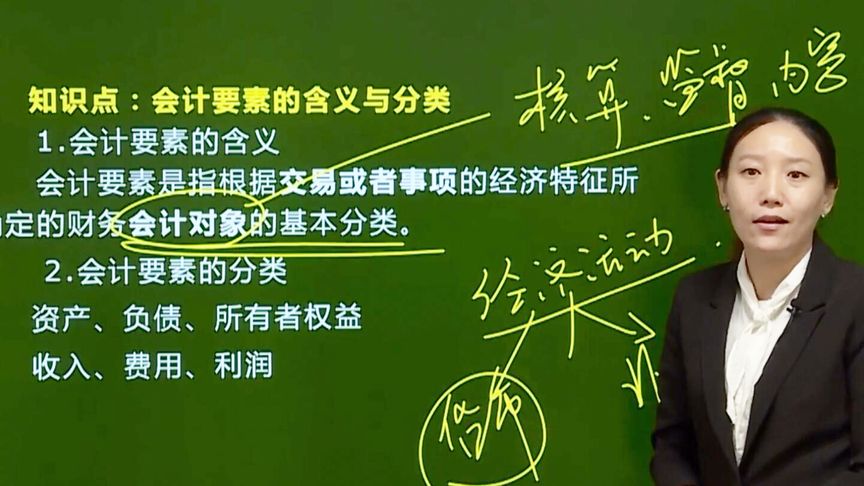 知识点：会计要素的含义与分类
1.会计要素的含义
会计要素是指根据交易或者事项的经济特征所
定的财务会计对象的基本分类。
2.会计要素的分类
资产、负债、所有者权益
收入、费用、利润
核算、监督 内容
经济活动